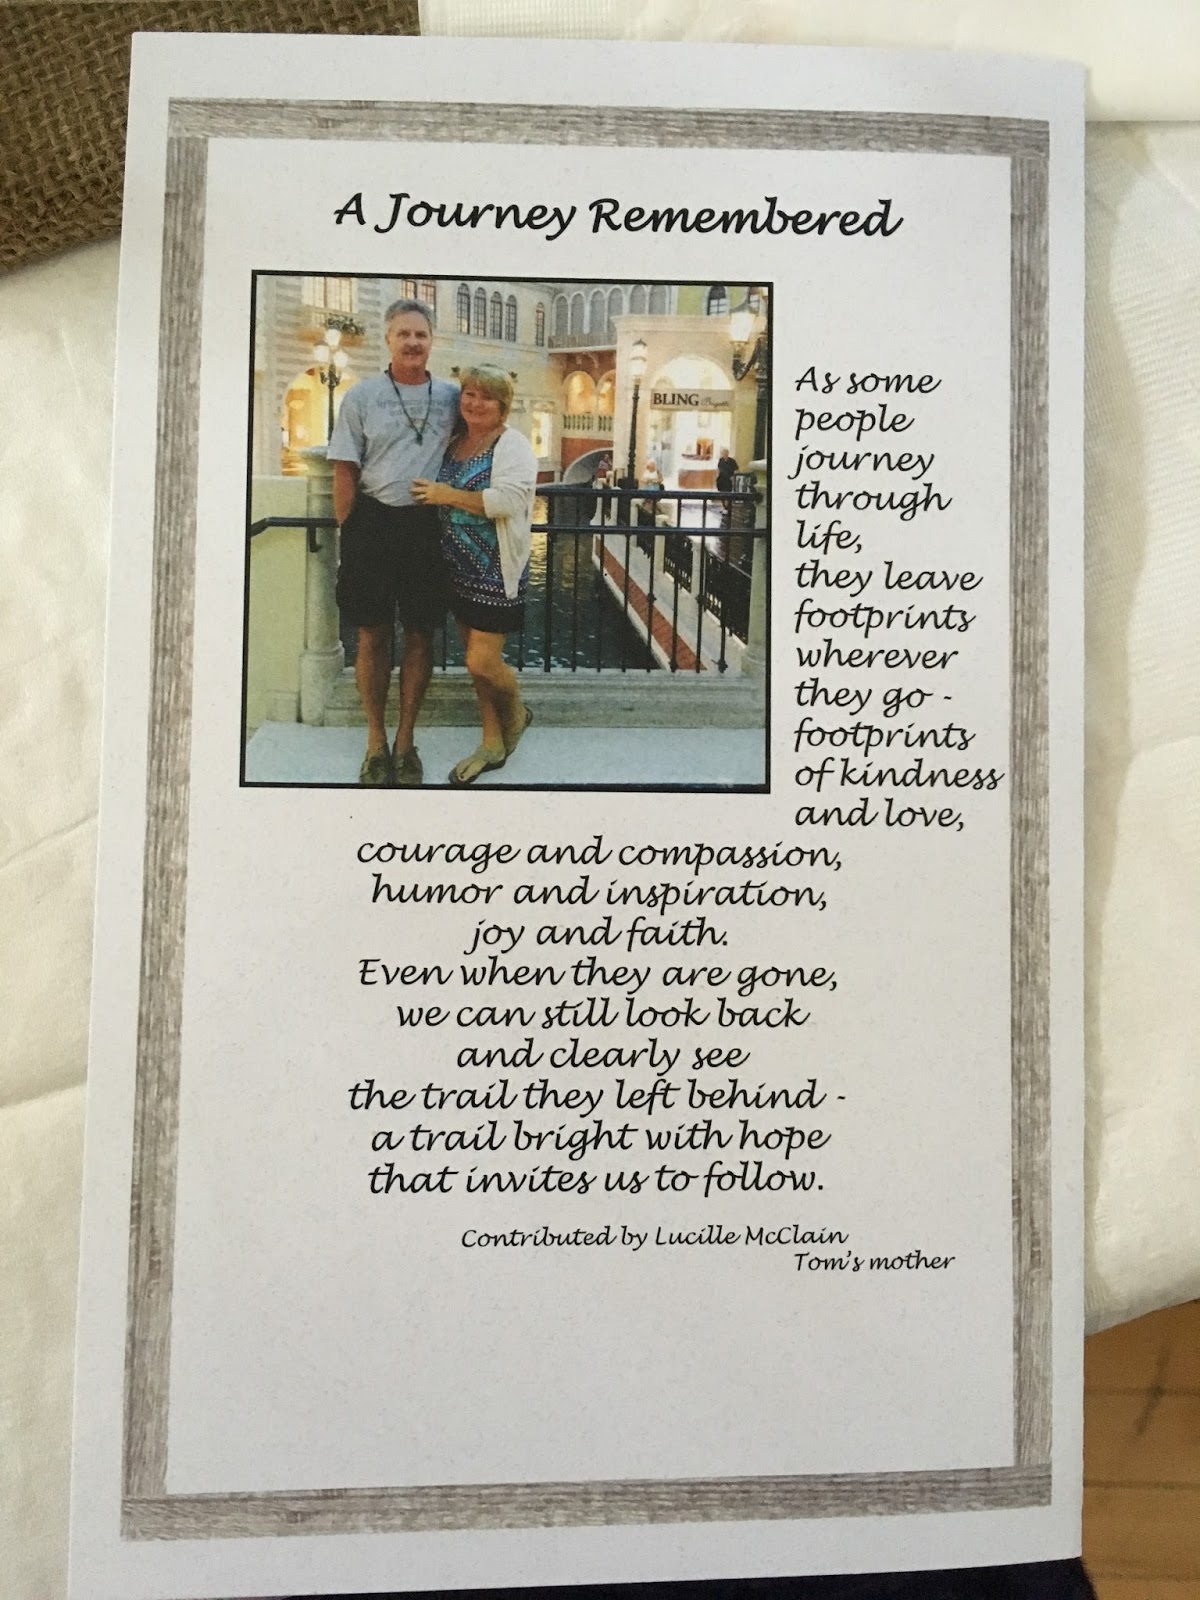 A Journey Remembered
BLING
As some
people
journey
through
life,
they leave
footprints
wherever
they go -
footprints
of kindness
and love,
courage and compassion,
humor and inspiration,
joy and faith.
Even when they are gone,
we can still look back
and clearly see
the trail they left behind -
a trail bright with hope
that invites us to follow.
Contributed by Lucille McClain
Tom's mother